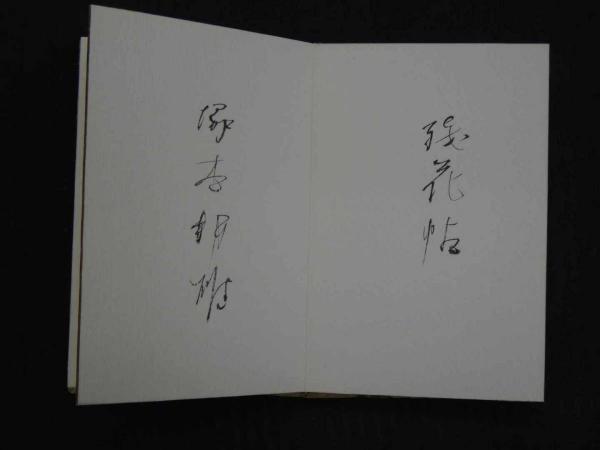 残花帖
塚本邦雄